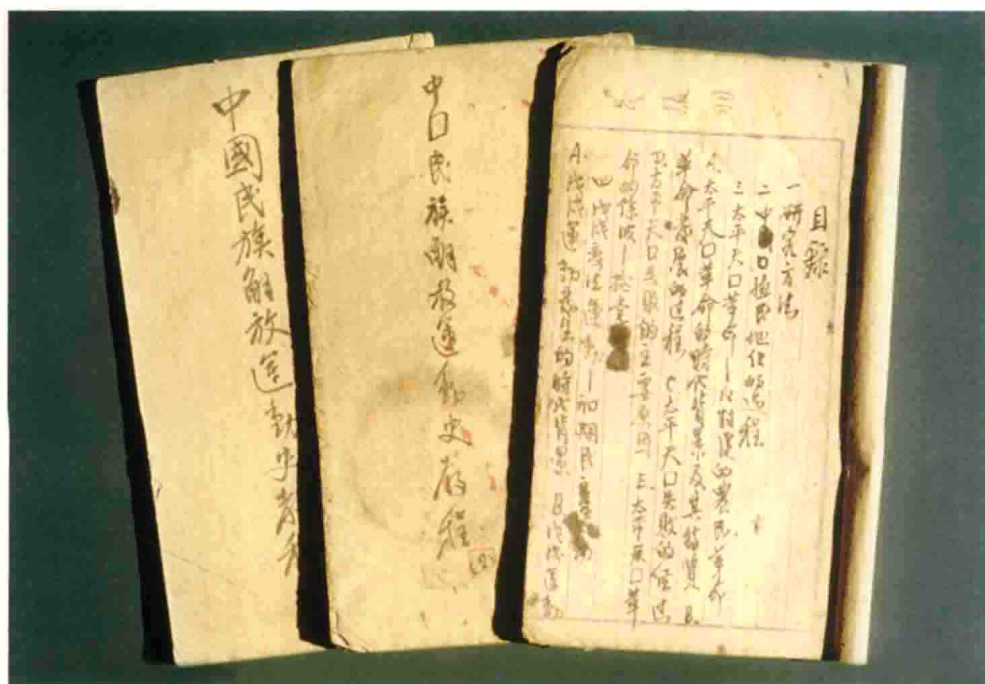 中國民族解放運動史教程
中口民族解放運動史教程
目錄
一研究方法
二中口殖民地化的過程
三太平天口革命—反封建的農民革命
A.太平天口革命的時代背景及其特質 B.
革命發展的過程 C太平天口失敗的經過
D.太平天口失敗的主要原因 E.太平天口革
命的餘波—捻党
四戊戌变法運動—初期民主
A.戊戌運動發生的時代背景 B戊戌運動